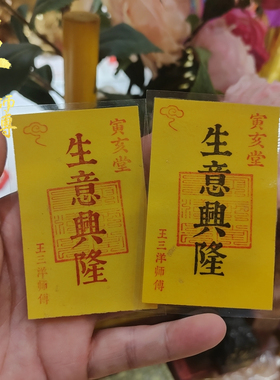 寅亥堂
生意興隆
王三洋師傅
寅亥堂
生意興隆
王三洋師傅